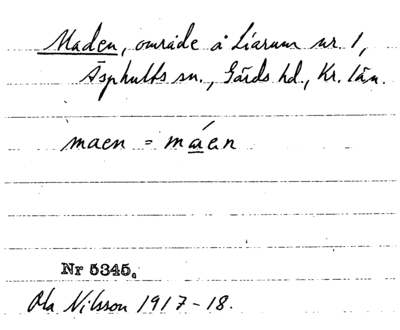 Maden, område å Liarum nr. 1,
Äsphults sn., Gärds hd., Kr. län.
maen = máen
Nr 5345.
Ola Nilsson 1917-18.